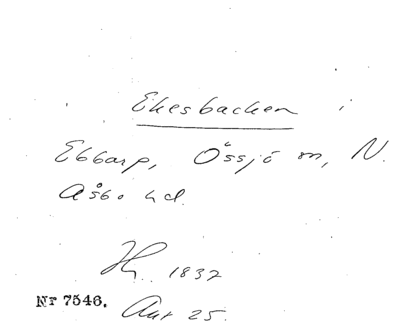 Ekesbacken i
Ebbarp, Össjö sn, N.
Åsbo hd.
1837
Nr 7546. Akt 25.